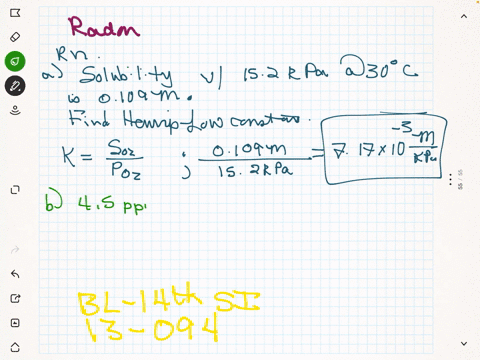 Radon
Rn.
a) Solubility w/ 15.2 kPa @30°C
is 0.109 m.
Find Henry's Law constant.
K = S_O2 / P_O2 ; 0.109 m / 15.2 kPa = 7.17 × 10^-3 m / kPa
b) 4.5 pp
BL-14th SI
13-094
55 / 55